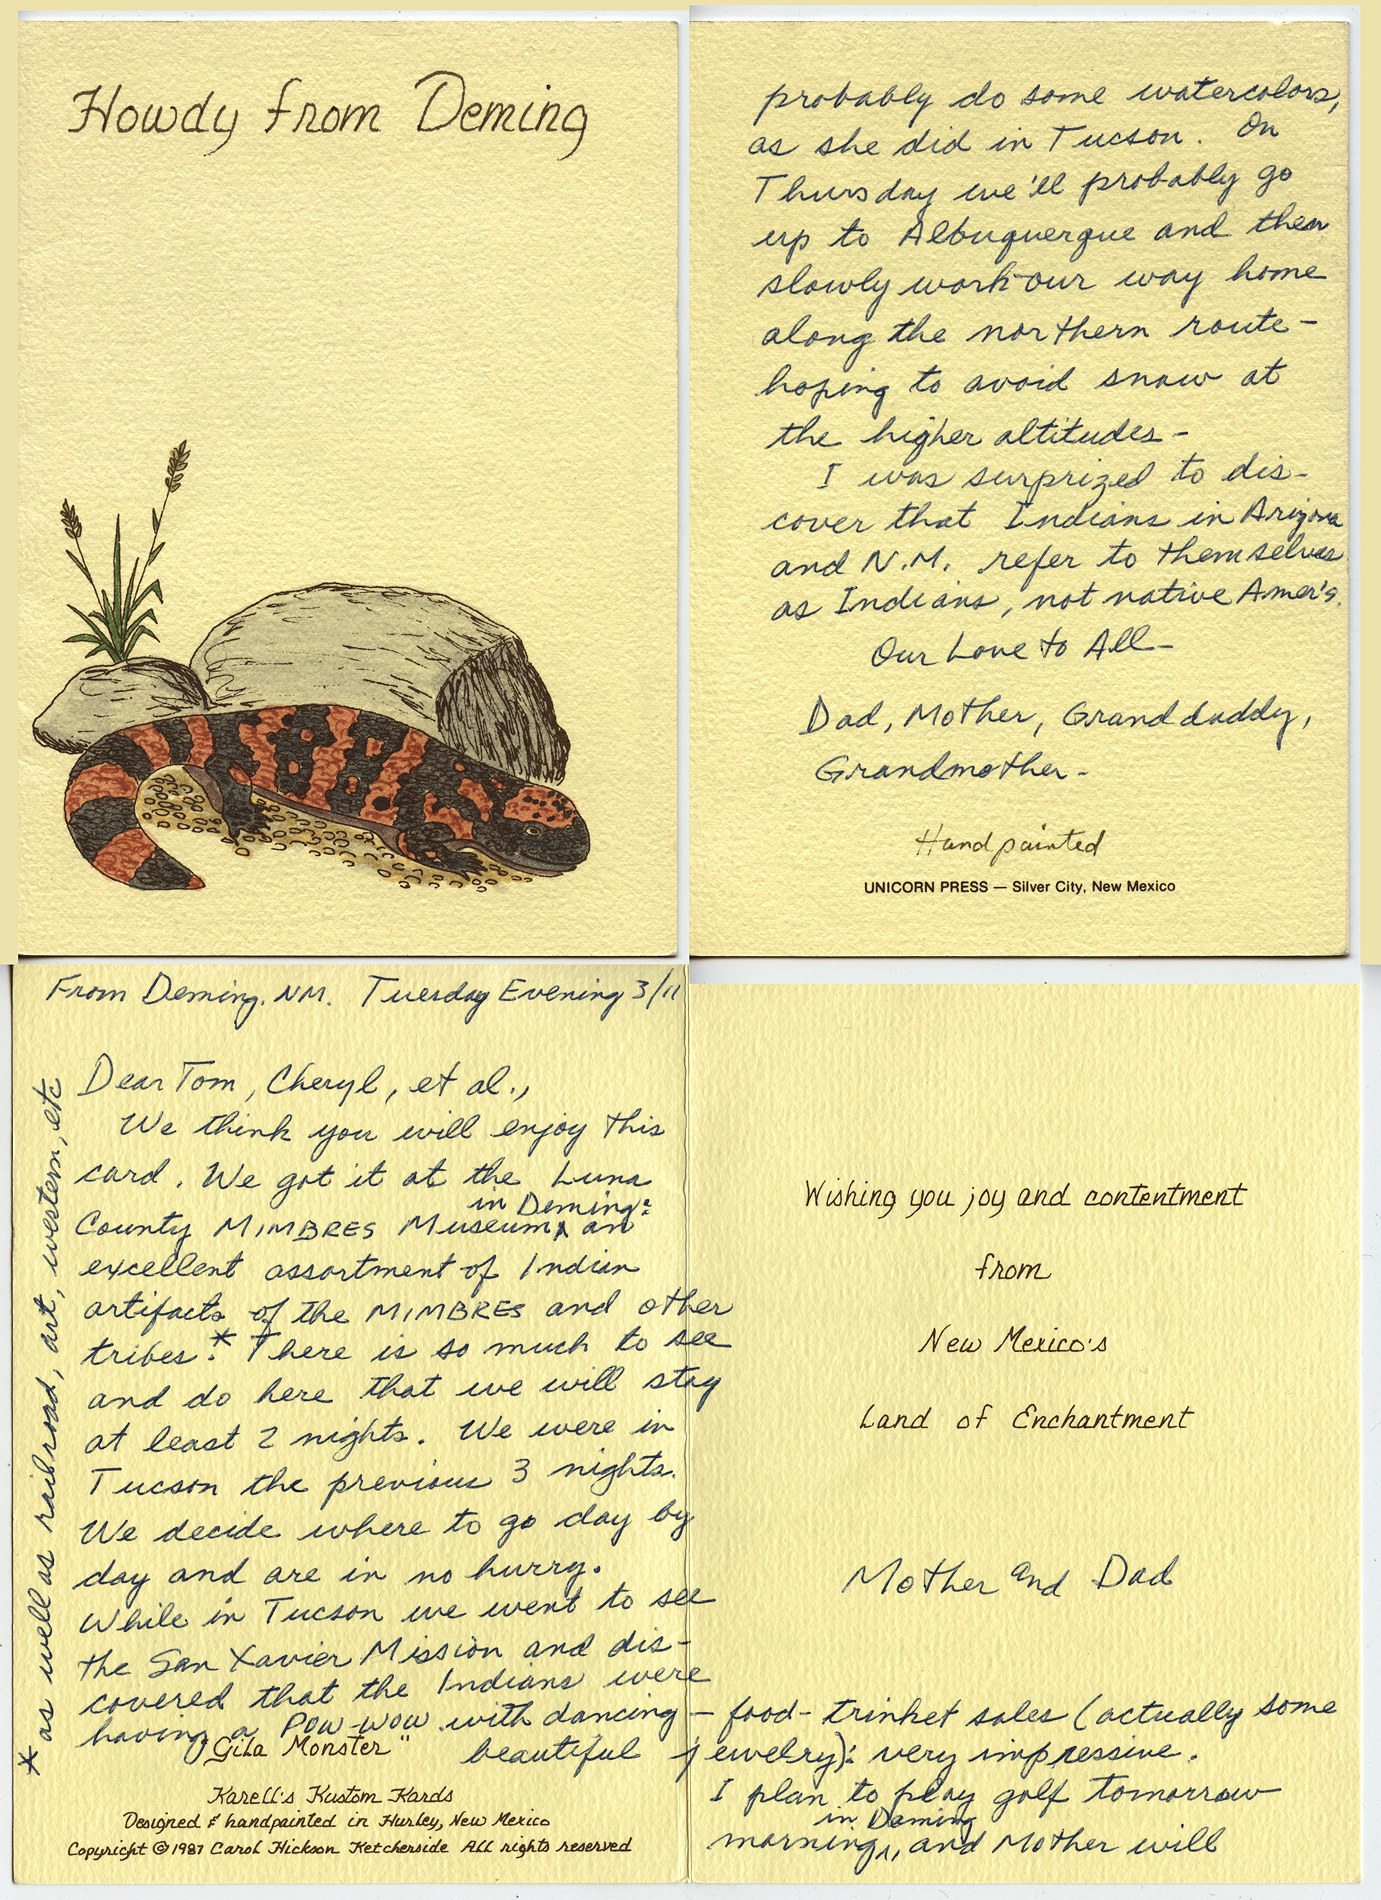 Howdy from Deming
From Deming, NM. Tuesday Evening 3/11
Dear Tom, Cheryl, et al.,
We think you will enjoy this
card. We got it at the Luna
in Deming:
County MIMBRES Museum^ an
excellent assortment of Indian
artifacts of the MIMBRES and other
tribes.* There is so much to see
and do here that we will stay
at least 2 nights. We were in
Tucson the previous 3 nights.
We decide where to go day by
day and are in no hurry.
While in Tucson we went to see
the San Xavier Mission and dis-
covered that the Indians were
having a POW-WOW with dancing – food – trinket sales (actually some
beautiful jewelry): very impressive.
* as well as railroad, art, western, etc
"Gila Monster"
Karell's Kustom Kards
Designed & handpainted in Hurley, New Mexico
Copyright © 1987 Carol Hickson Ketcherside All rights reserved
Wishing you joy and contentment
from
New Mexico's
Land of Enchantment
Mother and Dad
I plan to play golf tomorrow
in Deming
morning^, and Mother will
probably do some watercolors,
as she did in Tucson. On
Thursday we'll probably go
up to Albuquerque and then
slowly work our way home
along the northern route –
hoping to avoid snow at
the higher altitudes –
I was surprized to dis-
cover that Indians in Arizona
and N.M. refer to themselves
as Indians, not native Amer's.
Our Love to All –
Dad, Mother, Granddaddy,
Grandmother –
Handpainted
UNICORN PRESS — Silver City, New Mexico